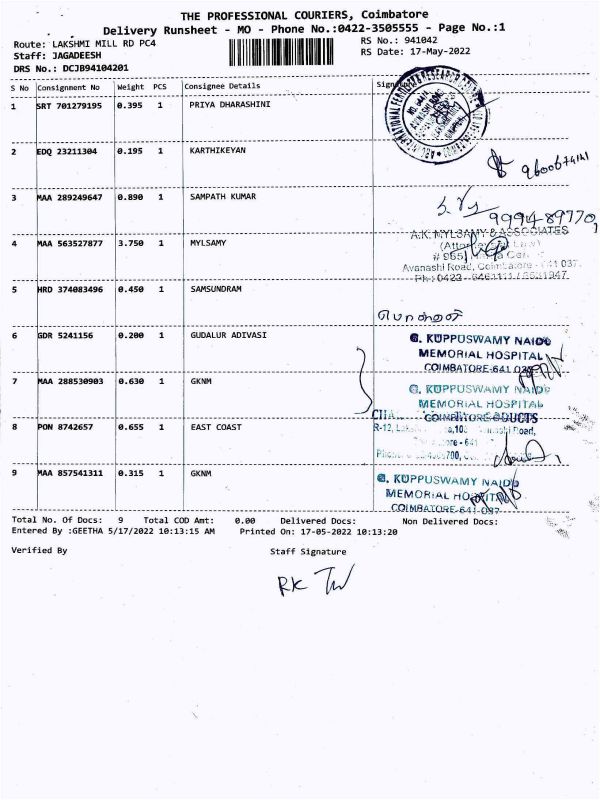 THE PROFESSIONAL COURIERS, Coimbatore
Delivery Runsheet - MO - Phone No.:0422-3505555 - Page No.:1
Route: LAKSHMI MILL RD PC4
RS No.: 941042
Staff: JAGADEESH
RS Date: 17-May-2022
DRS No.: DCJB94104201
S No Consignment No Weight PCS Consignee Details Signature
1 SRT 701279195 0.395 1 PRIYA DHARASHINI
2 EDQ 23211304 0.195 1 KARTHIKEYAN
9600674141
3 MAA 289249647 0.890 1 SAMPATH KUMAR
9994-89770
A.K. MYLSAMY & ASSOCIATES
4 MAA 563527877 3.750 1 MYLSAMY
Avanashi Road, Coimbatore - 641 037.
5 HRD 374083496 0.450 1 SAMSUNDRAM
6 GDR 5241156 0.200 1 GUDALUR ADIVASI
G. KUPPUSWAMY NAIDU
MEMORIAL HOSPITAL
COIMBATORE-641 037
7 MAA 288530903 0.630 1 GKNM
G. KUPPUSWAMY NAIDU
MEMORIAL HOSPITAL
8 PON 8742657 0.655 1 EAST COAST
9 MAA 857541311 0.315 1 GKNM
G. KUPPUSWAMY NAIDU
MEMORIAL HOSPITAL
COIMBATORE-641 037
Total No. Of Docs: 9 Total COD Amt: 0.00 Delivered Docs: Non Delivered Docs:
Entered By :GEETHA 5/17/2022 10:13:15 AM Printed On: 17-05-2022 10:13:20
Verified By Staff Signature